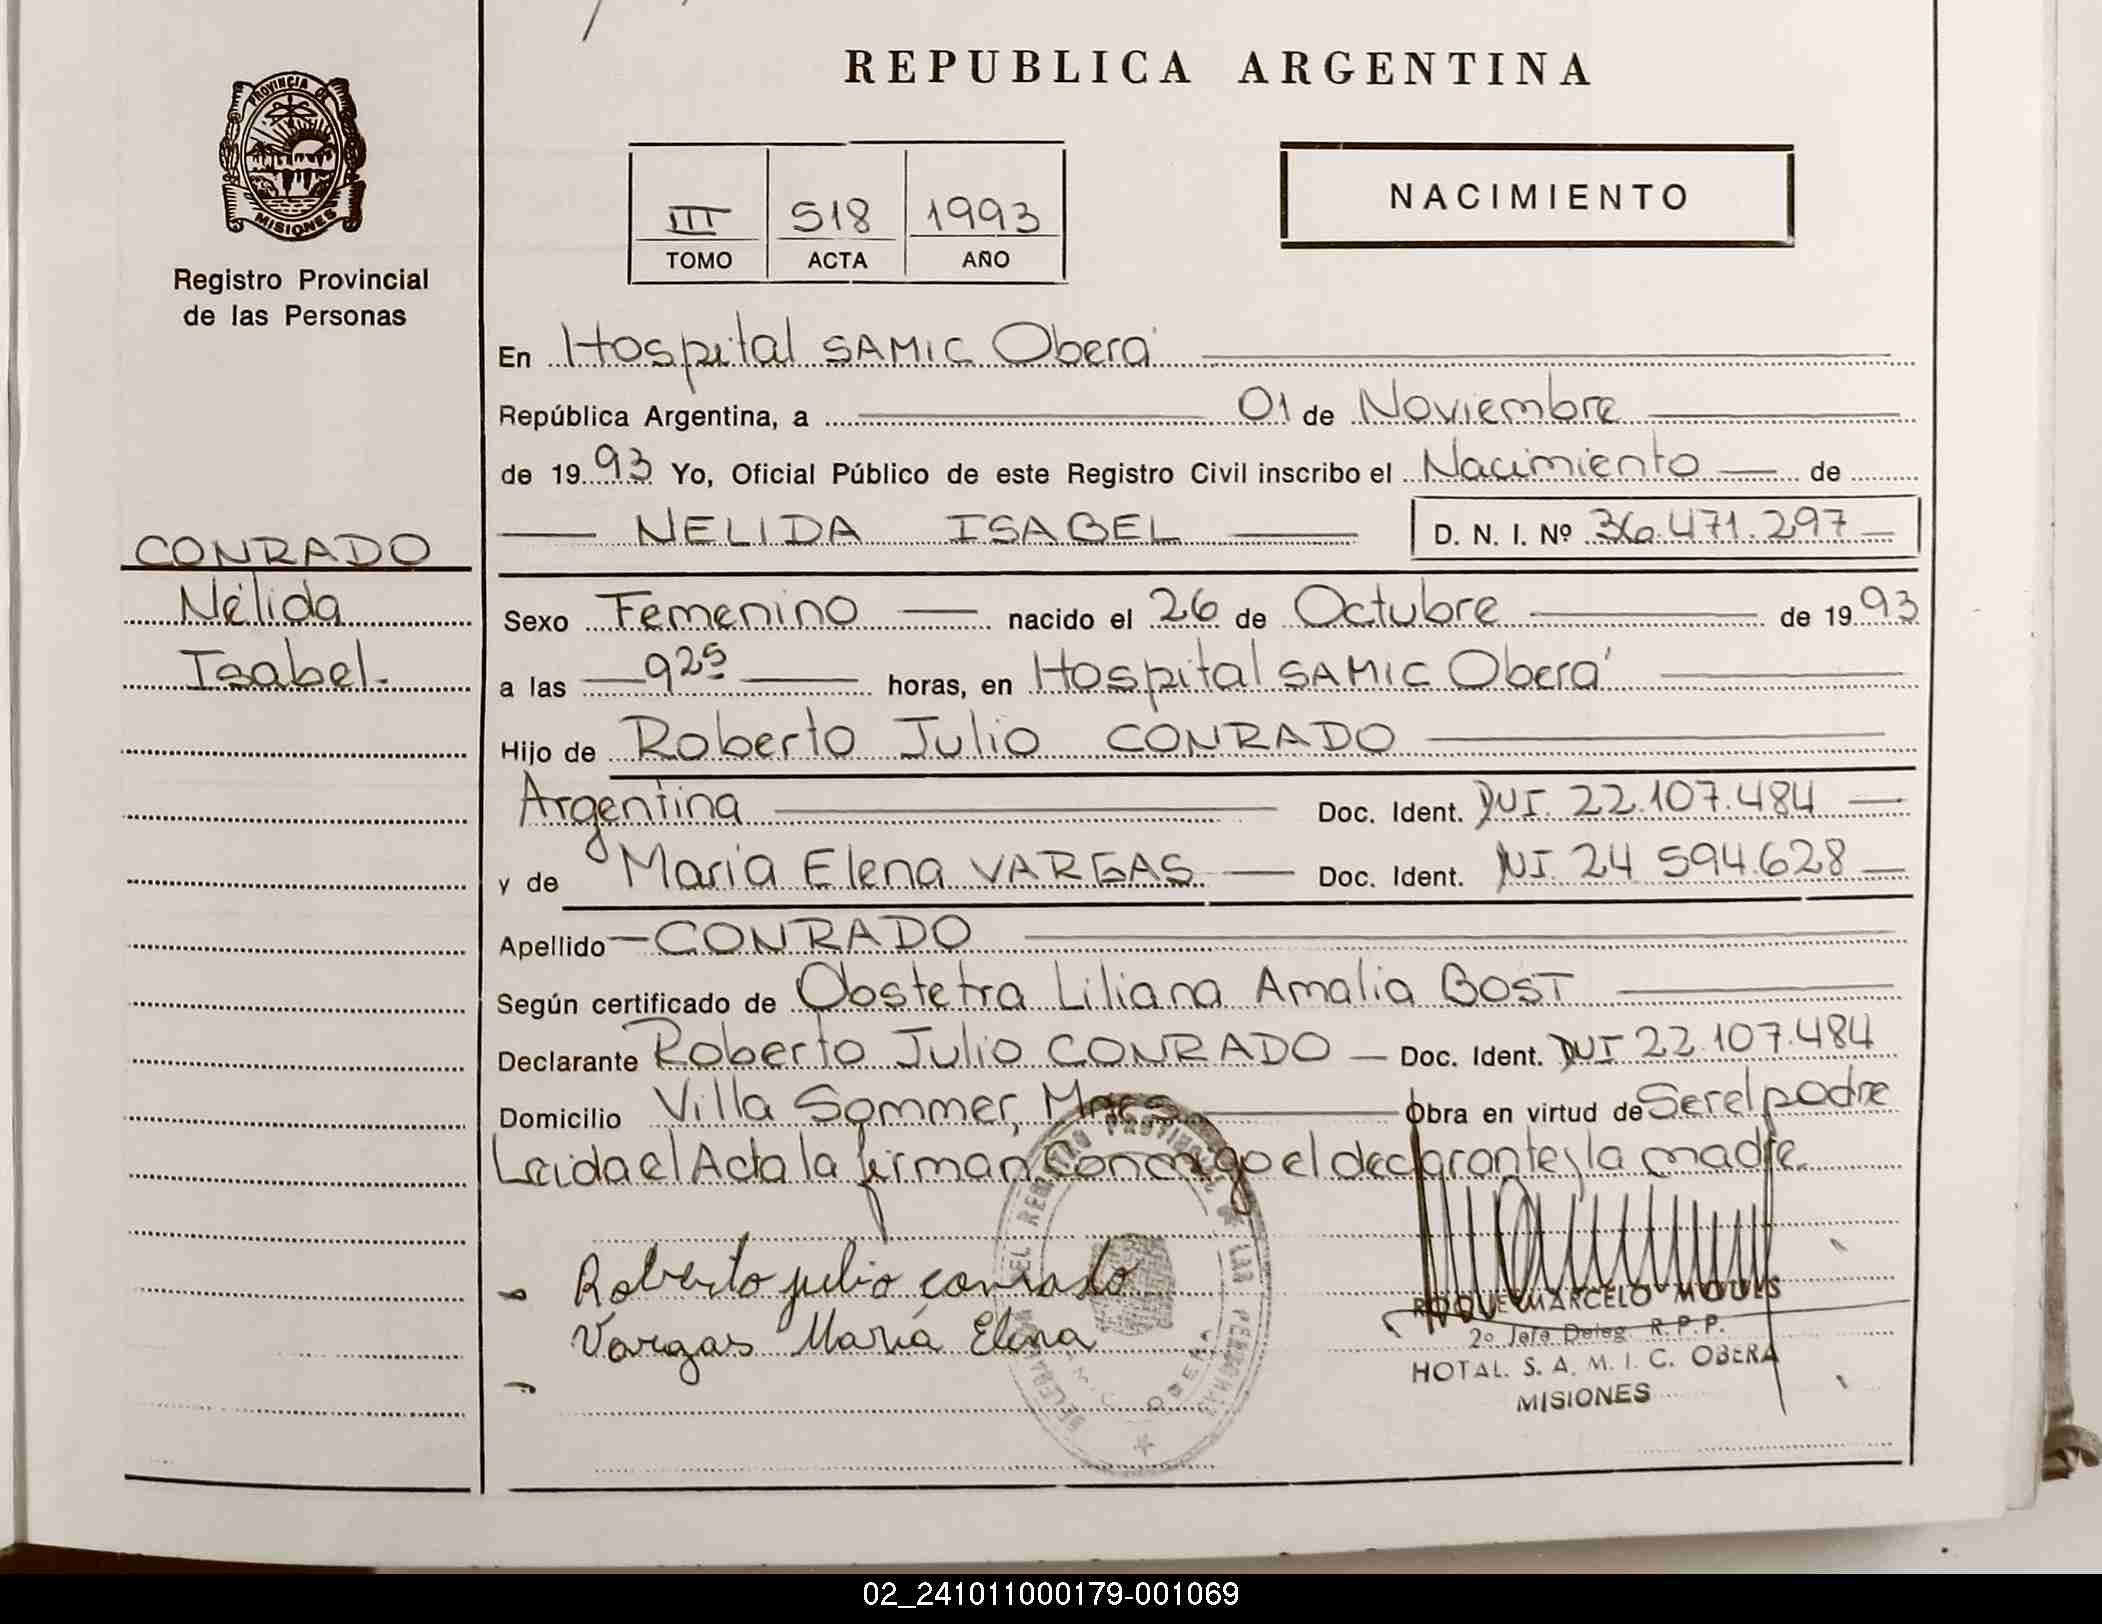 REPUBLICA ARGENTINA
PROVINCIA DE
MISIONES
Registro Provincial
de las Personas
III 518 1993
TOMO ACTA AÑO
NACIMIENTO
En Hospital SAMIC Oberá
República Argentina, a 01 de Noviembre
de 1993 Yo, Oficial Público de este Registro Civil inscribo el Nacimiento de
NELIDA ISABEL D. N. I. Nº 36.471.297
CONRADO
Nélida
Isabel
Sexo Femenino nacido el 26 de Octubre de 1993
a las 925 horas, en Hospital SAMIC Oberá
Hijo de Roberto Julio CONRADO
Argentina Doc. Ident. DNI. 22.107.484
y de María Elena VARGAS Doc. Ident. DNI. 24 594.628
Apellido CONRADO
Según certificado de Obstetra Liliana Amalia BOST
Declarante Roberto Julio CONRADO Doc. Ident. DNI 22.107.484
Domicilio Villa Sommer, Mnes Obra en virtud de Ser el padre
Leida el Acta la firman conmigo el declarante y la madre.
Roberto julio conrado
Vargas María Elena
ROQUE MARCELO
2º Jefe Deleg. R. P. P.
HOTAL. S. A. M. I. C. OBERA
MISIONES
02_241011000179-001069